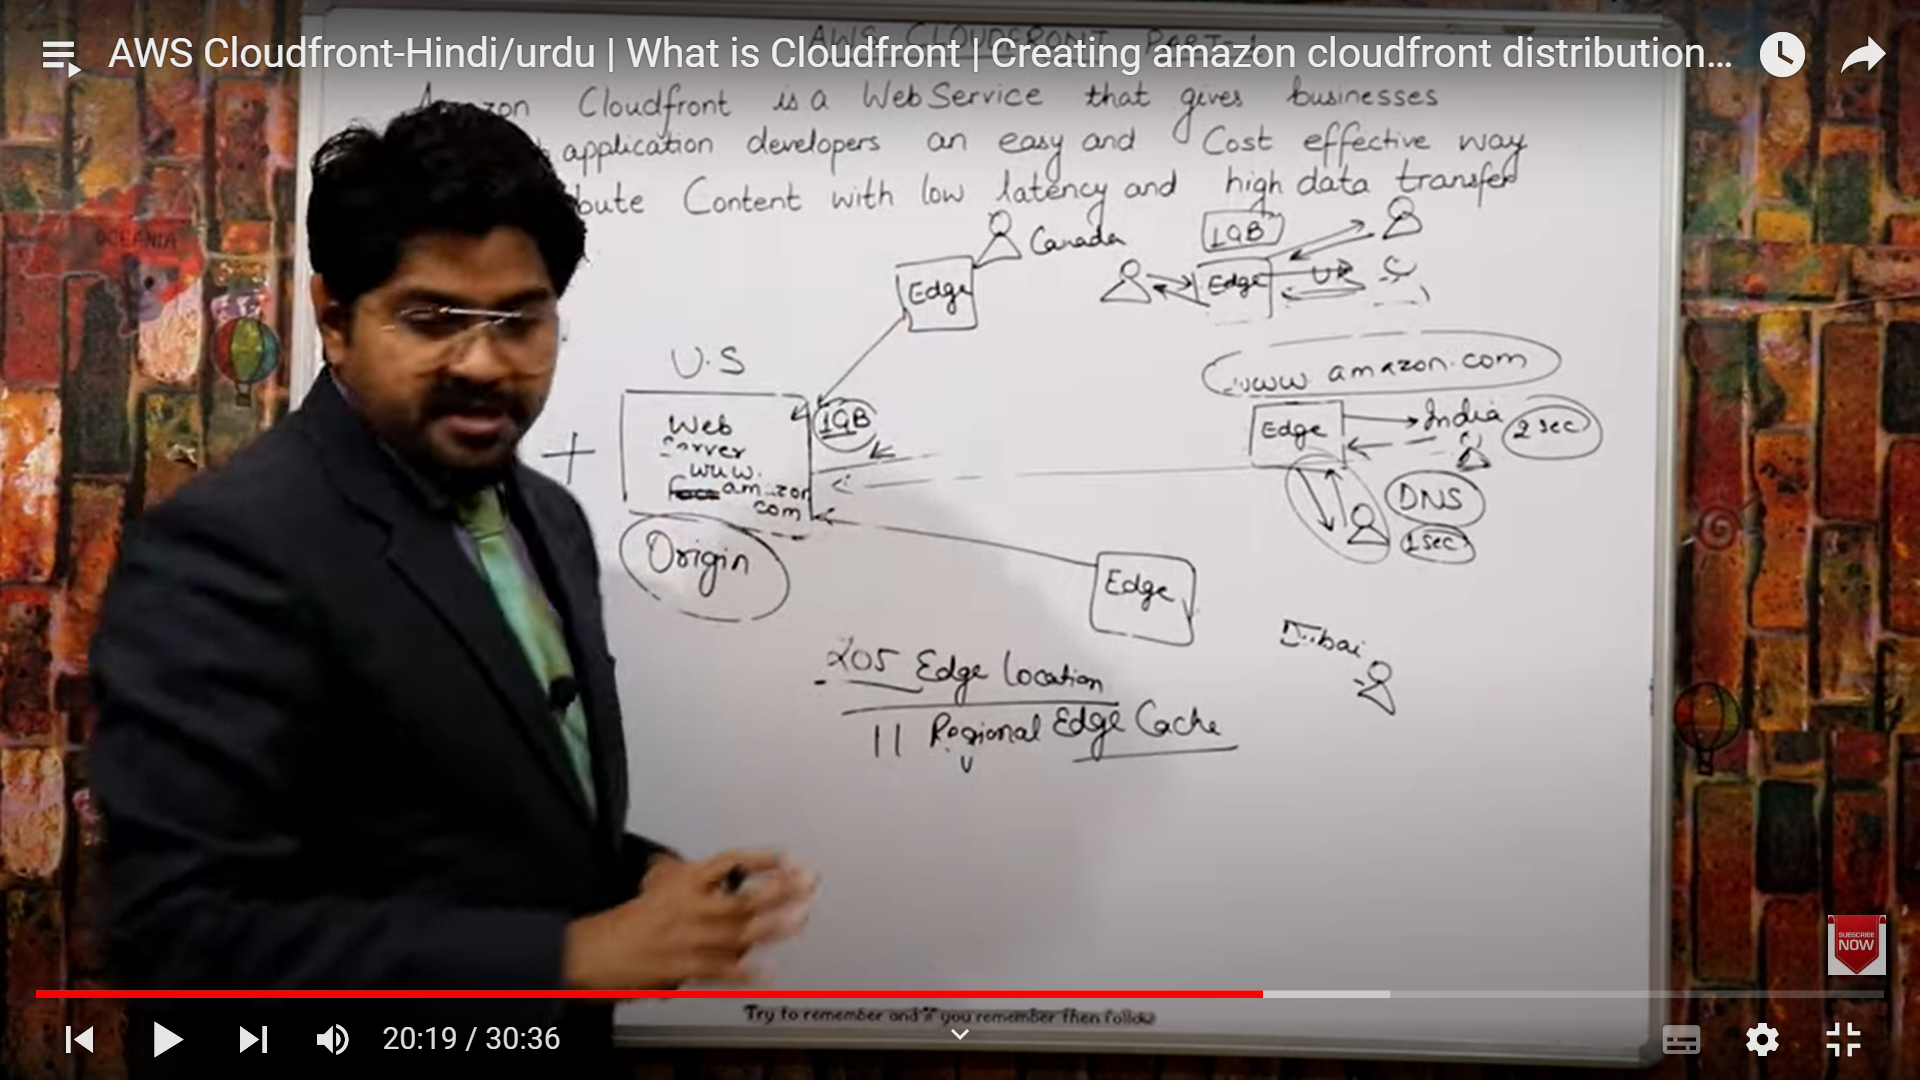 AWS Cloudfront-Hindi/urdu | What is Cloudfront | Creating amazon cloudfront distribution...
AWS CLOUDFRONT PART-1
Amazon Cloudfront is a Web Service that gives businesses
application developers an easy and Cost effective way
bute Content with low latency and high data transfer
Canada
1GB
Edge
Edge
UK
U.S
www amazon.com
Web
Server
www.
amazon
com
1GB
Edge
India
2 sec
DNS
1 sec
Origin
Edge
Dubai
205 Edge Location
11 Regional Edge Cache
SUBSCRIBE
NOW
Try to remember and if you remember then follow
20:19 / 30:36